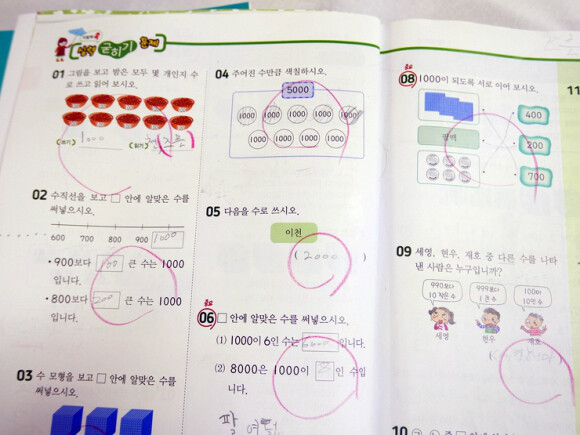 실력 굳히기 문제
01 그림을 보고 밤은 모두 몇 개인지 수
로 쓰고 읽어 보시오.
(쓰기) 1000 (읽기)
02 수직선을 보고 □ 안에 알맞은 수를
써넣으시오.
600 700 800 900 1000
• 900보다 100 큰 수는 1000
입니다.
• 800보다 200 큰 수는 1000
입니다.
03 수 모형을 보고 □ 안에 알맞은 수를
써넣으시오.
04 주어진 수만큼 색칠하시오.
5000
1000 1000 1000 1000 1000
1000 1000 1000 1000
05 다음을 수로 쓰시오.
이천
( 2000 )
06 □ 안에 알맞은 수를 써넣으시오.
(1) 1000이 6인 수는 6000 입니다.
(2) 8000은 1000이 8 인 수입
니다.
팔
08 1000이 되도록 서로 이어 보시오.
400
200
700
09 세영, 현우, 재호 중 다른 수를 나타
낸 사람은 누구입니까?
990보다
10 작은 수
999보다
1 큰 수
100이
10인 수
세영 현우 재호
10
11